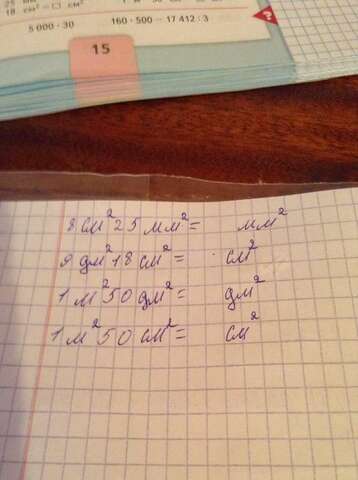 18 см² = □ см²
5 000 · 30 160 · 500 − 17 412 : 3
?
15
8 см² 25 мм² = мм²
9 дм² 18 см² = см²
1 м² 50 дм² = дм²
1 м² 50 см² = см²